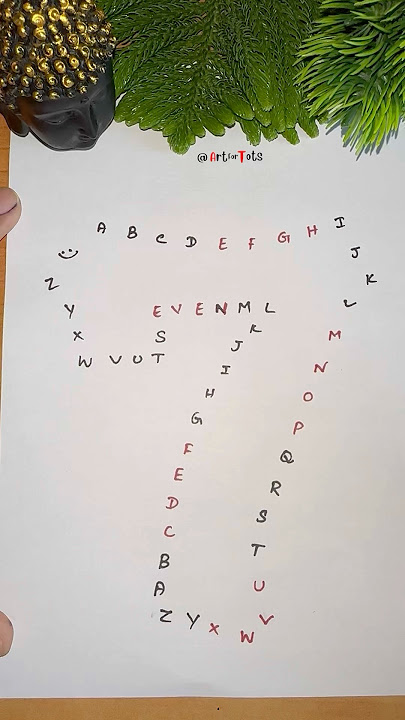 @ArtforTots
A B C D E F G H I
J
K
L
M
N
O
P
Q
R
S
T
U
V
W
X
Y
Z
A
B
C
D
E
F
G
H
I
J
K
E V E N M L
S
W V U T
X
Y
Z